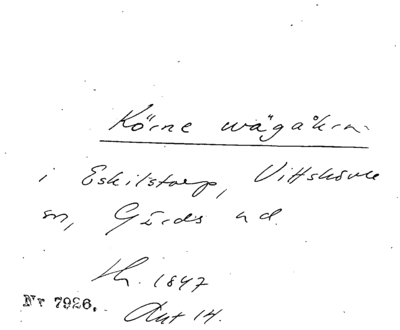 Körne wägåkra
i Eskilstorp, Vittskövle
sn, Gärds hd.
Th. 1847
Nr 7926. Aut 14.